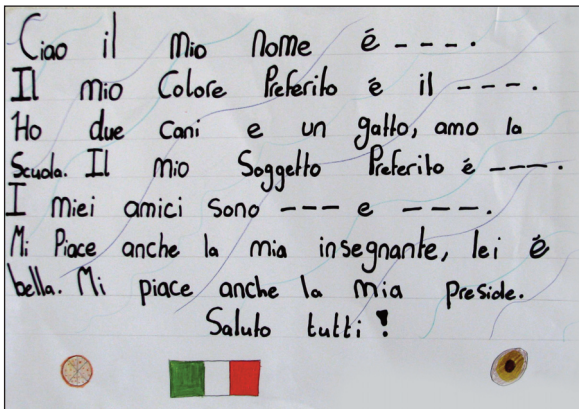 Ciao il mio nome é ----.
Il mio Colore Preferito é il ----.
Ho due cani e un gatto, amo la
Scuola. Il mio Soggetto Preferito é ----.
I miei amici sono --- e ----.
Mi Piace anche la mia insegnante, lei é
bella. Mi piace anche la mia preside.
Saluto tutti!